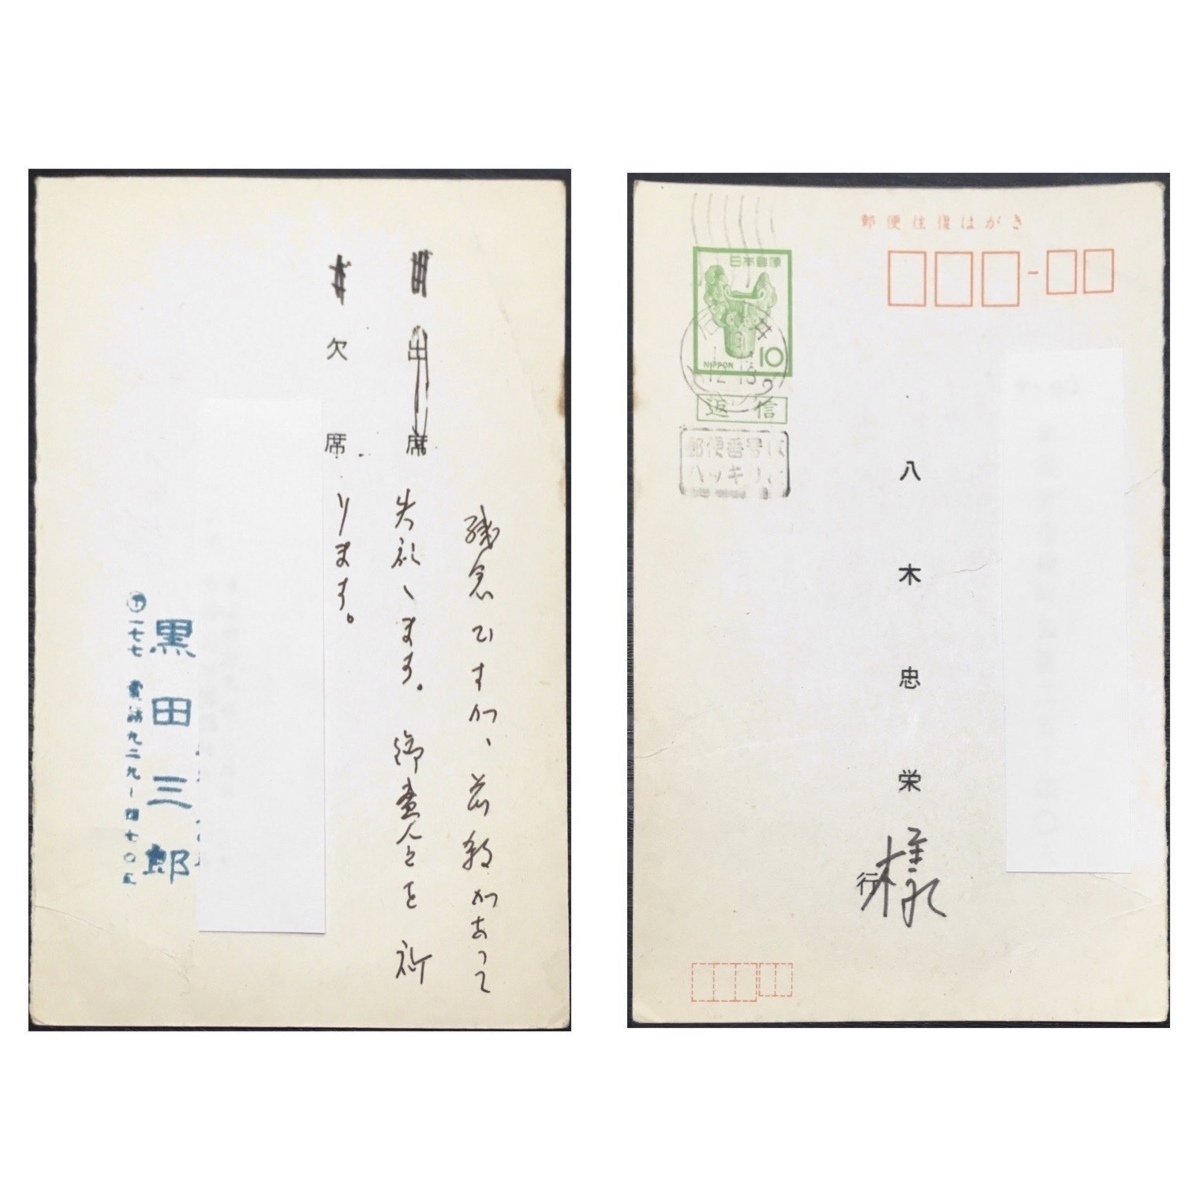 残念ですが、前約があって
出席
失礼します。御盛会を祈
欠席
ります。
黒田三郎
〒一七七 電話九二九ー四七〇五
郵便往復はがき
日本郵便
NIPPON 10
返信
郵便番号は
ハッキリと
八木忠栄 行 様